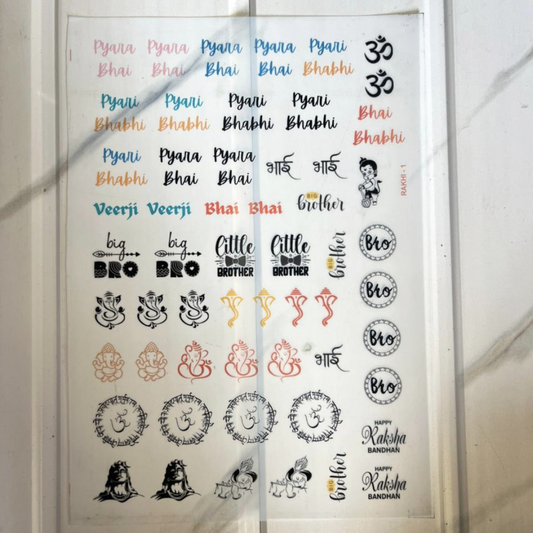 Pyara Pyara Pyara Pyara Pyari
Bhai Bhai Bhai Bhai Bhabhi
ॐ
ॐ
Pyari Pyari Pyari Pyari
Bhabhi Bhabhi Bhabhi Bhabhi
Bhai
Bhabhi
Pyari Pyara Pyara भाई भाई
Bhabhi Bhai Bhai
RAKHI - 1
Veerji Veerji Bhai Bhai
BIG
brother
big big little little
BRO BRO BROTHER BROTHER
BIG
brother
Bro
Bro
Bro
भाई
Bro
ॐ ॐ ॐ ॐ
HAPPY
Raksha
BANDHAN
BIG
brother
HAPPY
Raksha
BANDHAN